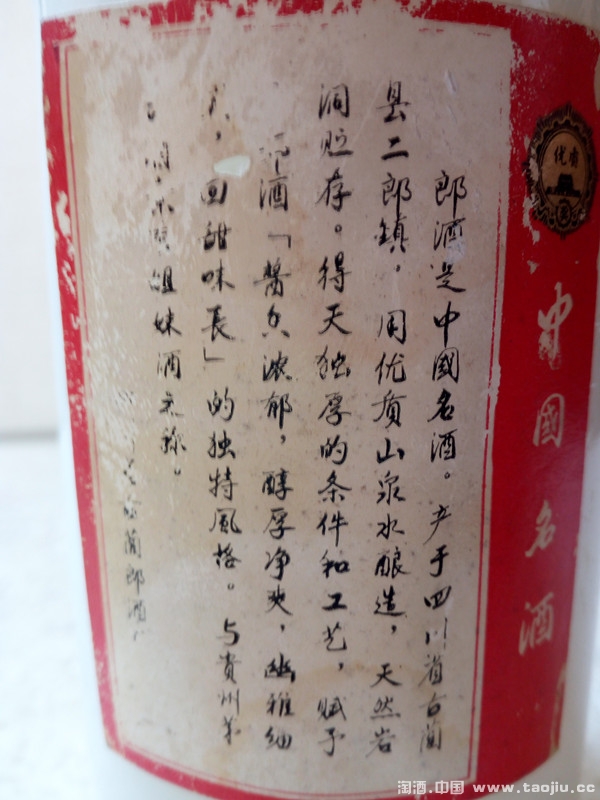 优
中國名酒
郎酒是中國名酒。产于四川省古蔺
县二郎镇，用优质山泉水酿造，天然岩
洞贮存。得天独厚的条件和工艺，赋予
酒「醬香浓郁，醇厚净爽，幽雅细
，回甜味長」的独特風格。与貴州茅
姐妹酒之称。
蔺郎酒
淘酒.中国 www.taojiu.cc